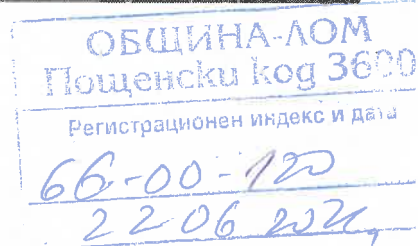 ОБЩИНА-ЛОМ
Пощенски код 3600
Регистрационен индекс и дата
66-00-120
22 06